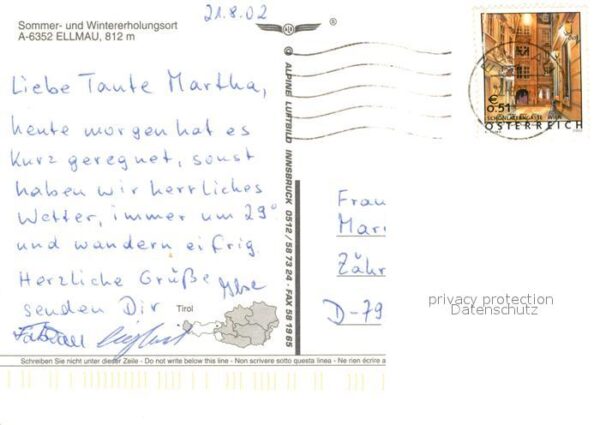 21.8.02
Sommer- und Wintererholungsort
A-6352 ELLMAU, 812 m
Liebe Tante Martha,
heute morgen hat es
kurz geregnet, sonst
haben wir herrliches
Wetter, immer um 29°
und wandern eifrig.
Herzliche Grüße
senden Dir Ilse
Tirol
Schreiben Sie nicht unter dieser Zeile - Do not write below this line - Non scrivere sotto questa linea - Ne rien écrire a
© ALPINE LUFTBILD INNSBRUCK 0512 / 58 73 24 · FAX 58 19 65
€
0,51
SCHÖNLATERNGASSE WIEN
ÖSTERREICH
Frau
Mar
Zähr
D-79
privacy protection
Datenschutz